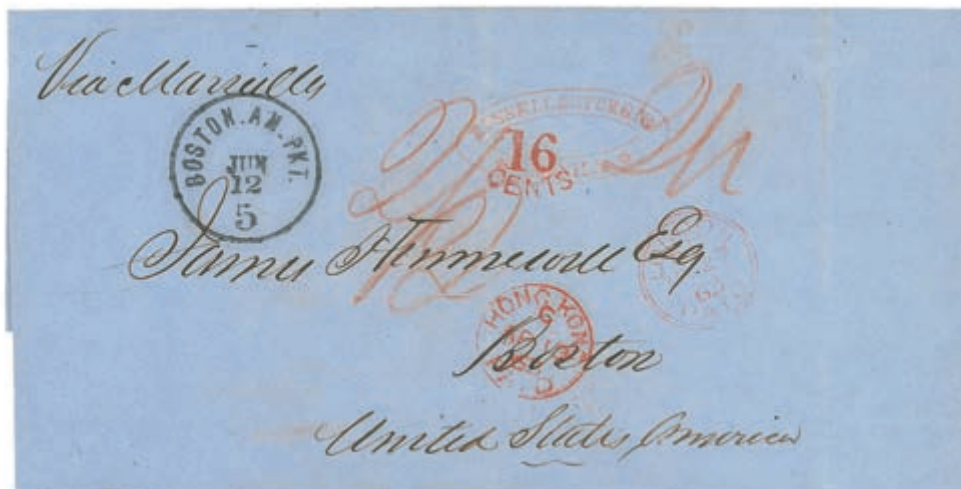 Via Marseilles
BOSTON. AM. PKT.
JUN
12
5
16
CENTS
James Hunnewell Esq
HONG KONG
Boston
United States America